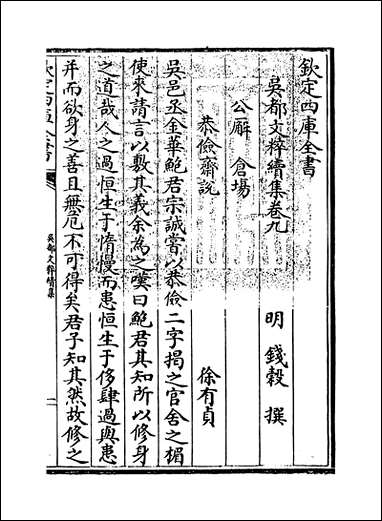 欽定四庫全書
吳都文粹續集卷九
明 錢穀 撰
公廨 倉塲
恭儉齋説
徐有貞
吳邑丞金華鮑君宗誠嘗以恭儉二字揭之官舍之楣
使來請言以敷其義余為之嘆曰鮑君其知所以修身
之道哉人之過恒生于惰慢而患恒生于侈肆過與患
幷而欲身之善且無厄不可得矣君子知其然故修之
吳都文粹續集
一